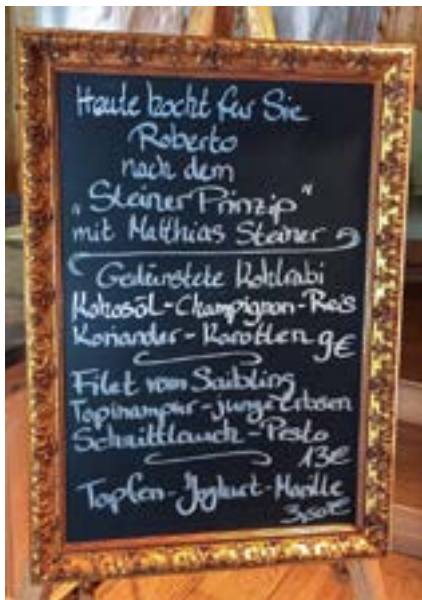 Heute kocht für Sie
Roberto
nach dem
„Steiner Prinzip“
mit Matthias Steiner
Gedünstete Kohlrabi
Kokosöl-Champignon-Reis
Koriander-Karotten 9€
Filet vom Saibling
Topinampur-junge Erbsen
Schnittlauch-Pesto
13€
Topfen-Joghurt-Marille
3,50€